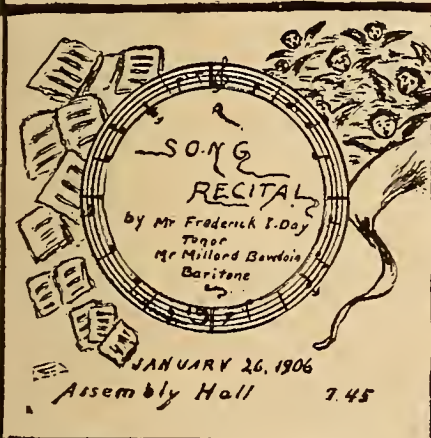 A
SONG
RECITAL
by Mr Frederick I. Day
Tenor
Mr Millard Bowdoin
Baritone
JANUARY 26, 1906
Assembly Hall 7.45